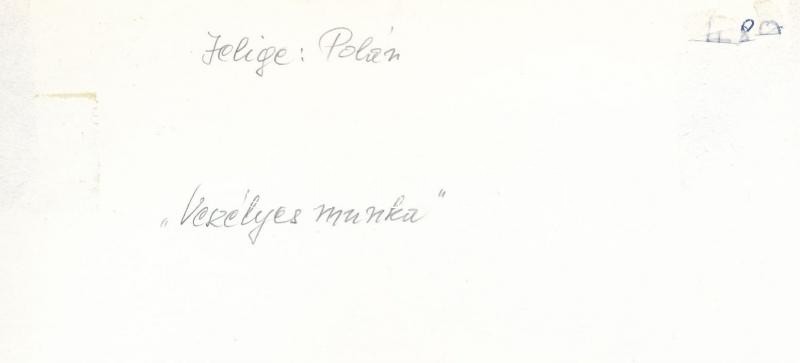 Jelige: Polán
„Veszélyes munka"